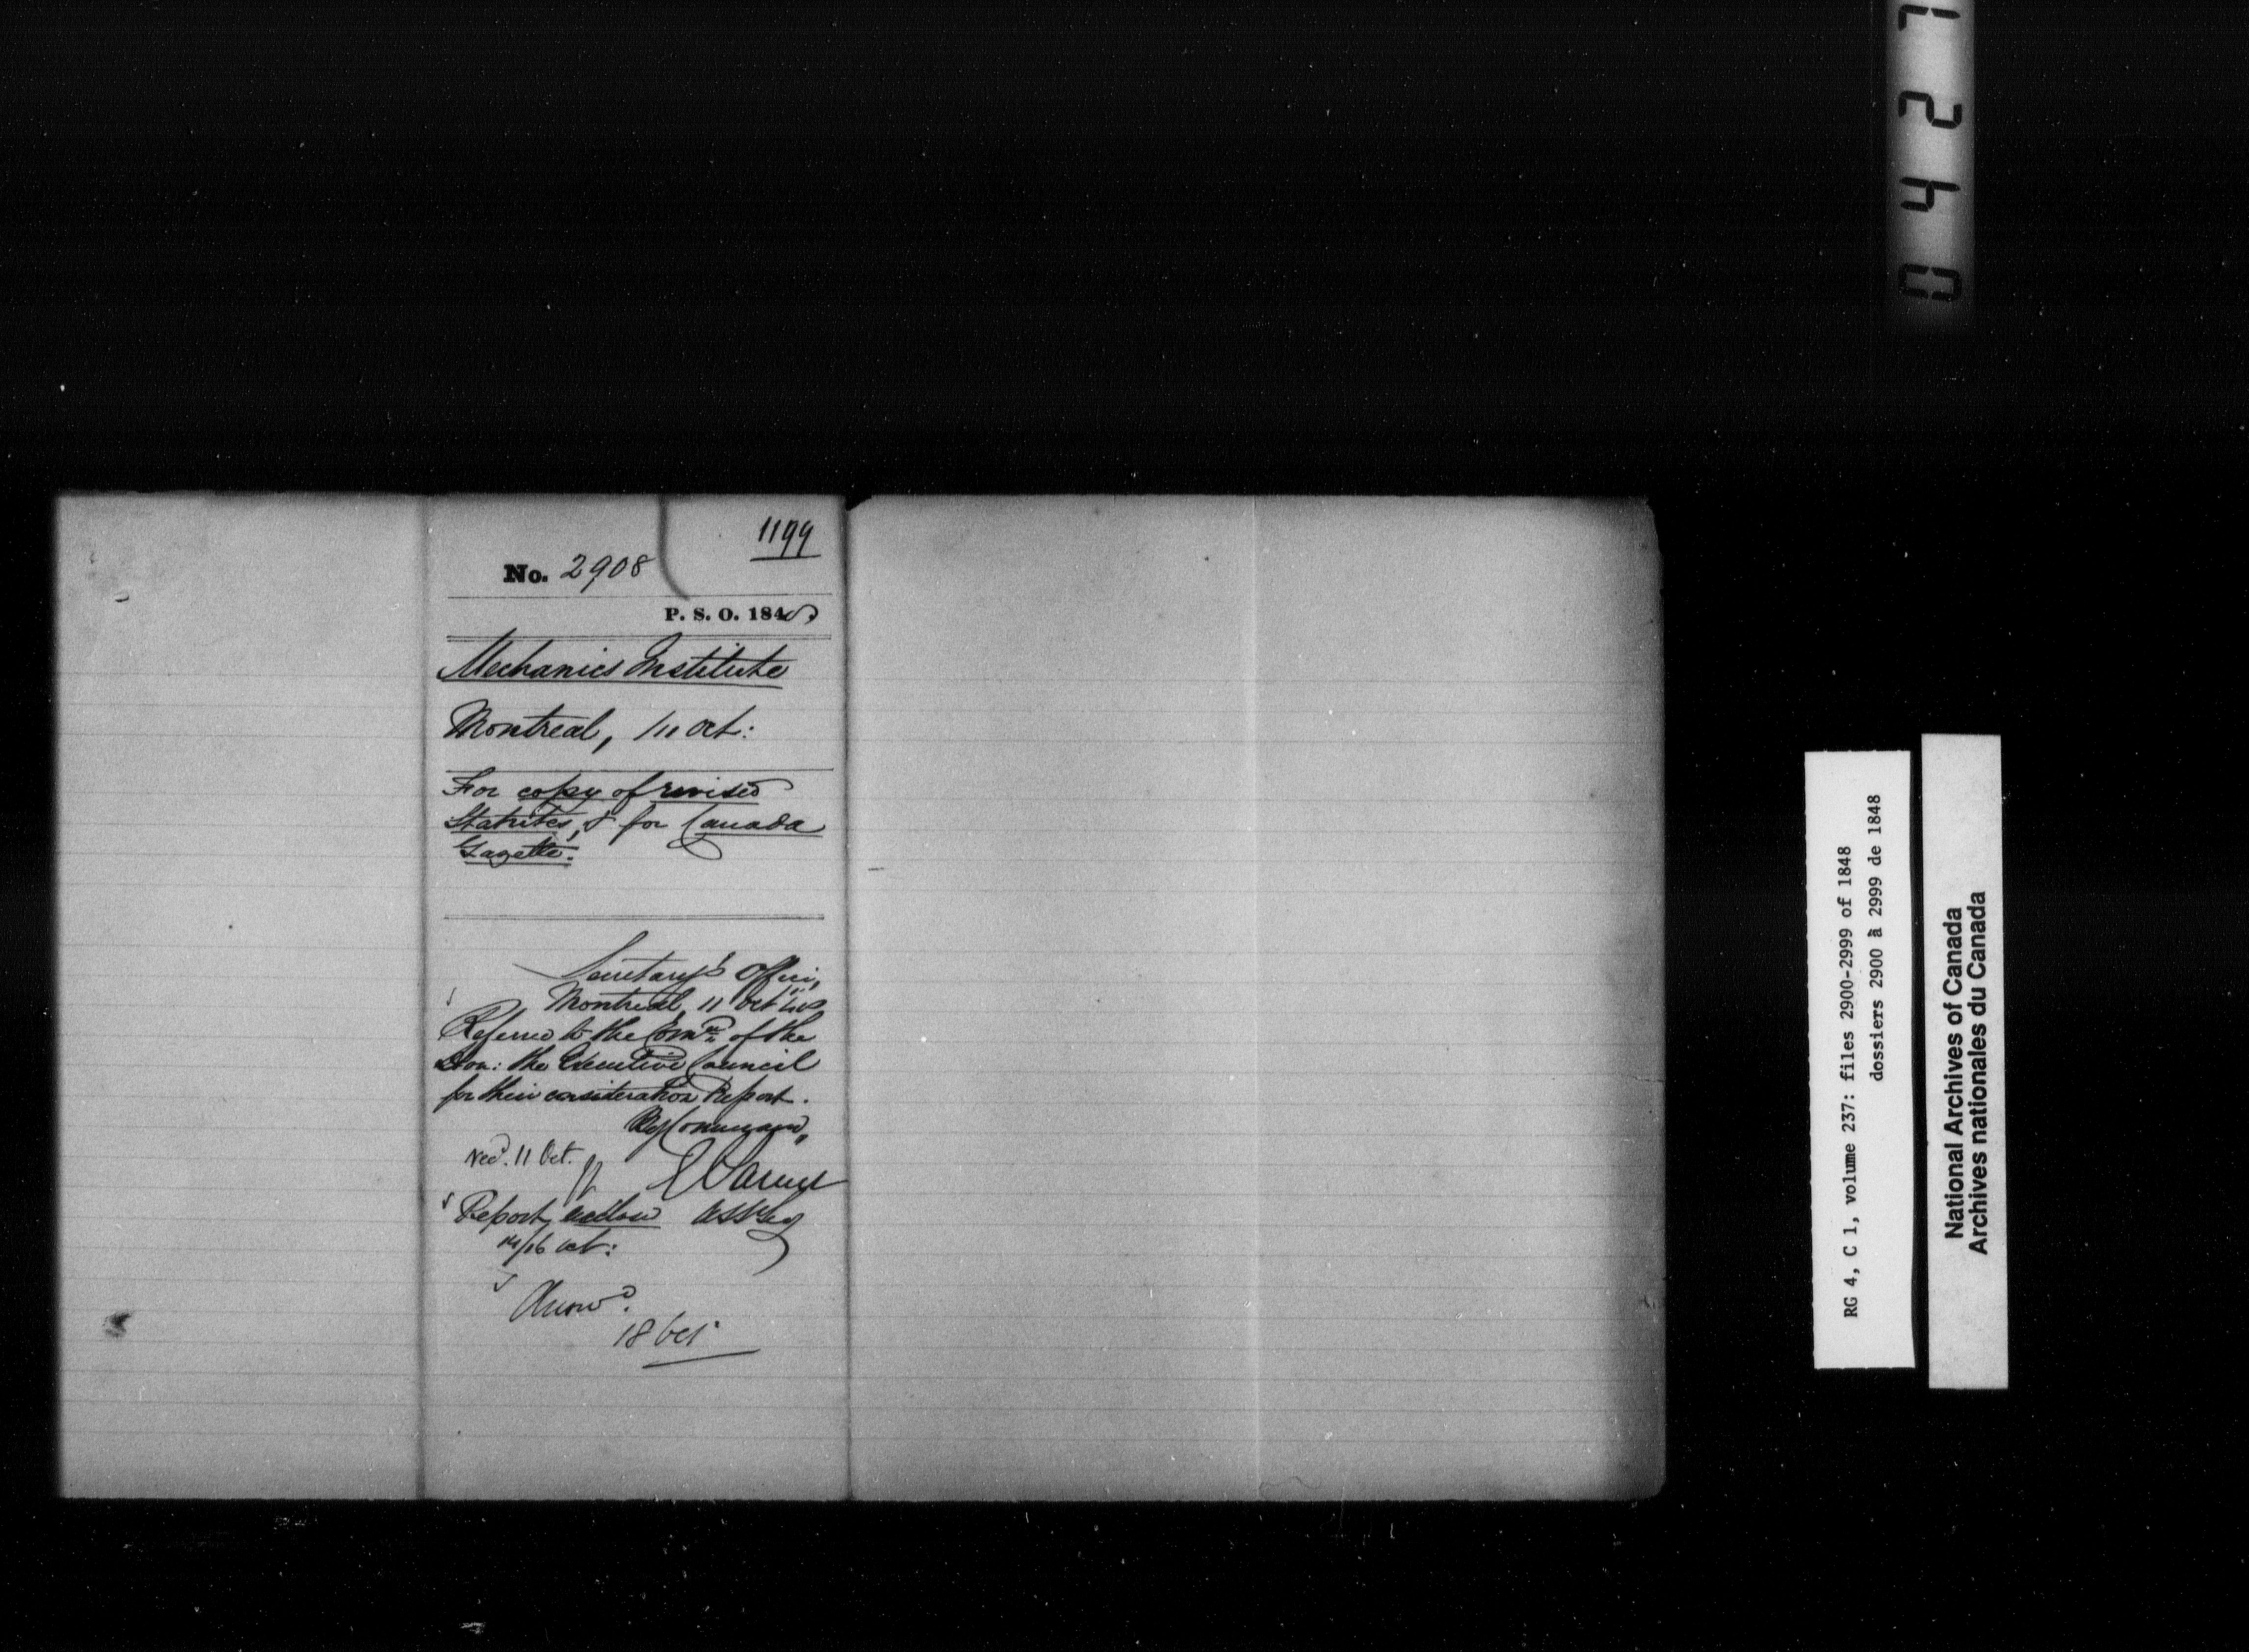 1199
No. 2908
P. S. O. 1848
Mechanics Institute
Montreal, 10 Oct:
For copy of revised
Statutes, & for Canada
Gazette.
Secretary's Office,
Montreal, 11 Oct 1848
Referred to the Comee of the
Hon: the Executive Council
for their consideration & Report.
By Command,
Recd. 11 Oct.
Report within
16 Oct:
Answd.
18 Oct
0427
RG 4, C 1, volume 237: files 2900-2999 of 1848
dossiers 2900 à 2999 de 1848
National Archives of Canada
Archives nationales du Canada